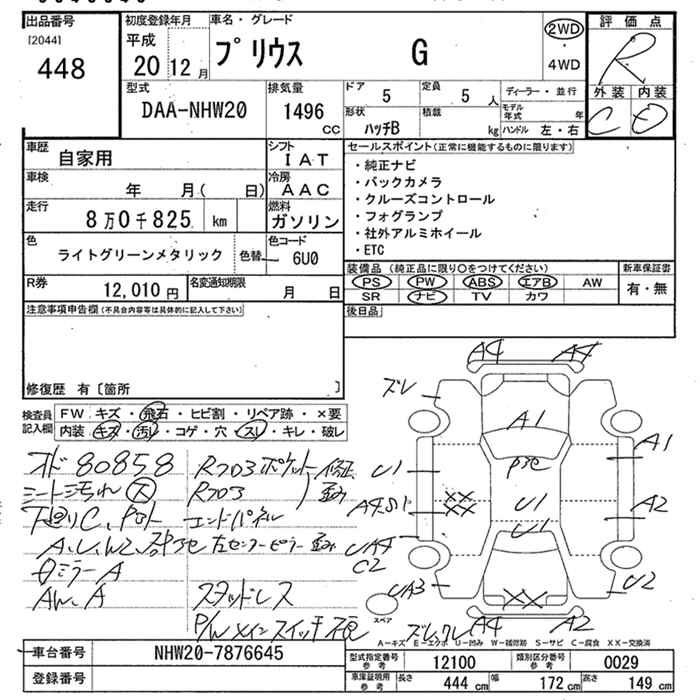 出品番号
[2044]
448
初度登録年月
平成
20 12 月
車名・グレード
プリウス G
2WD
・
4WD
評価点
R
外装 内装
C D
型式
DAA-NHW20
排気量
1496
cc
ドア 5
定員 5 人
形状 ハッチB
積載 kg
ディーラー・並行
モデル年式 年
ハンドル 左・右
車歴
自家用
シフト
IAT
車検
年 月( 日)
冷房
AAC
走行
8万0千825 km
燃料
ガソリン
色
ライトグリーンメタリック
色替
色コード
6U0
R券
12,010 円
名変通知期限
月 日
セールスポイント(正常に機能するものに限ります)
・純正ナビ
・バックカメラ
・クルーズコントロール
・フォグランプ
・社外アルミホイール
・ETC
装備品(純正品に限り○をつけてください)
PS PW ABS エアB AW
SR ナビ TV カワ
新車保証書
有・無
後日品
注意事項申告欄(不具合内容等は具体的に記入して下さい)
修復歴 有〔箇所 〕
検査員記入欄
FW キズ・飛石・ヒビ割・リペア跡・×要
内装 キズ・汚レ・コゲ・穴・スレ・キレ・破レ
オド 80858
シート汚れ 大
下廻りC、
A、U、W2、
左センターピラー
ミラーA
AW、A
Rフロア
Rフロア
エンドパネル
スタッドレス
P/Wメインスイッチ不良
A4 A4
ズレ
A1
A1
U1
U1
A2
U1
UA4
C2
UA3
U2
XX
XX
XX
A4 A2
スペア
A-キズ E-エクボ U-凹み W-補修跡 S-サビ C-腐食 XX-交換済
車台番号
NHW20-7876645
登録番号
型式指定番号参考
12100
類別区分番号参考
0029
車庫証明用参考
長さ 444 cm
幅 172 cm
高さ 149 cm